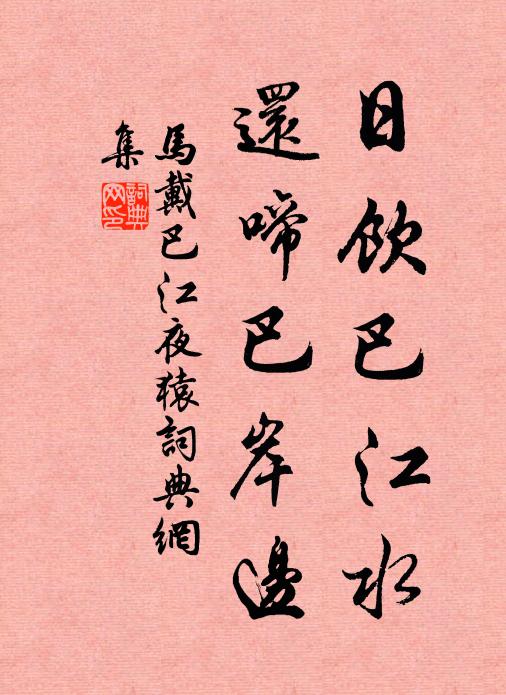 日飲巴江水
還啼巴岸邊
馬戴巴江夜猿詞典網
集
詞典
网印